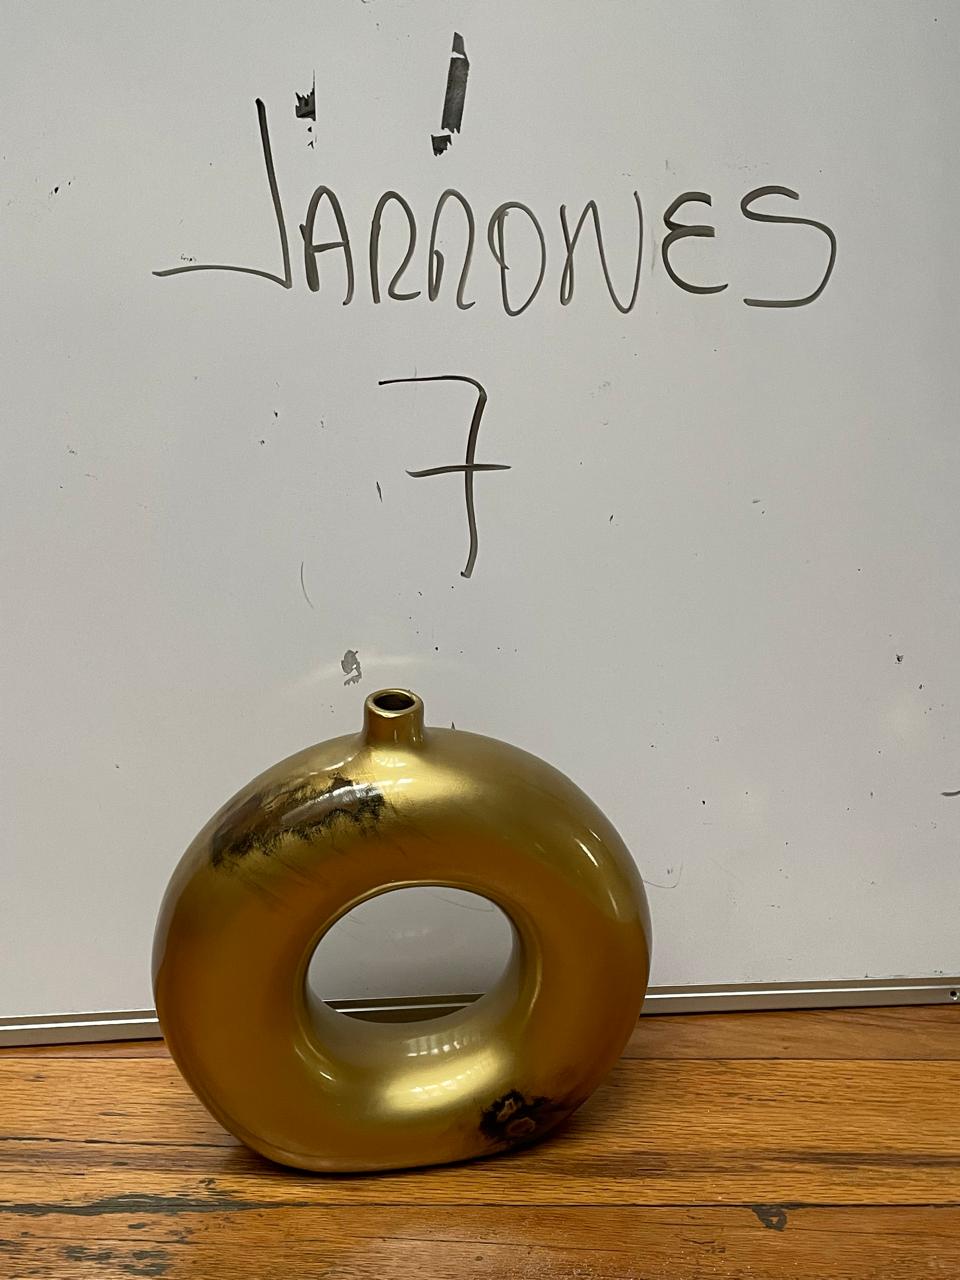 JARRONES
7